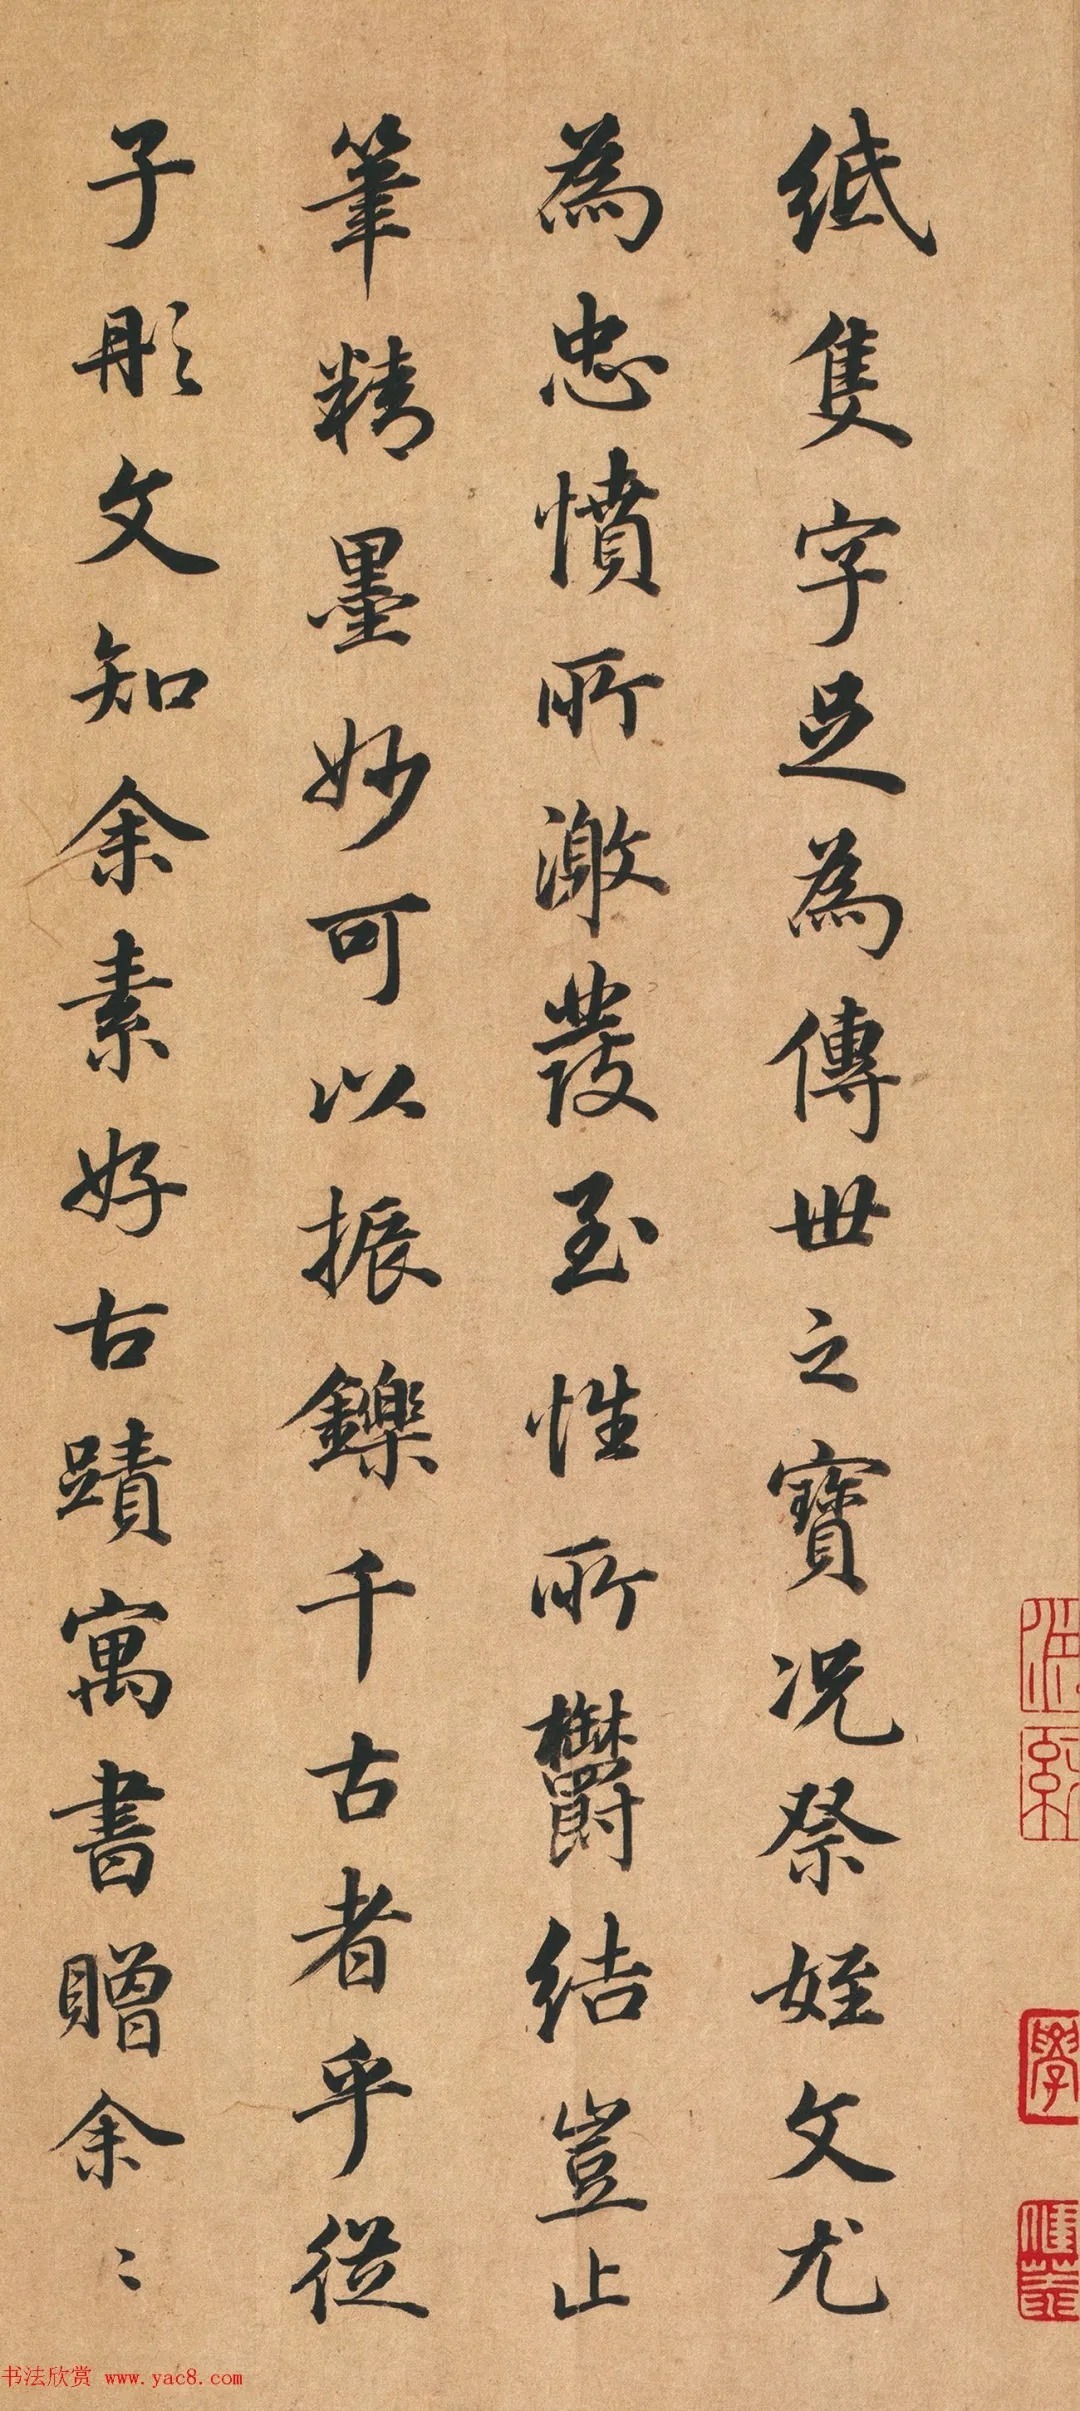 紙隻字足為傳世之寶況祭姪文尤
為忠憤所激發至性所鬱結豈止
筆精墨妙可以振鑠千古者乎從
子彤文知余素好古蹟寓書贈余〻
書法欣赏 www.yac8.com